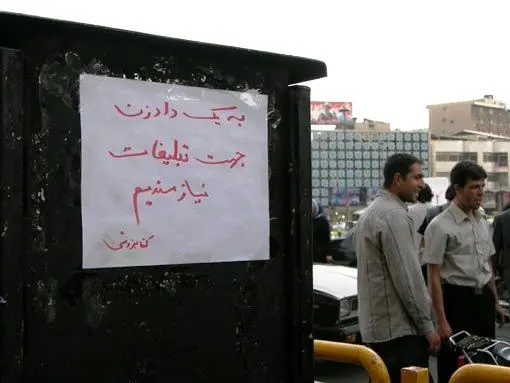 به یک دادزن
جهت تبلیغات
نیازمندیم
کتابفروشی